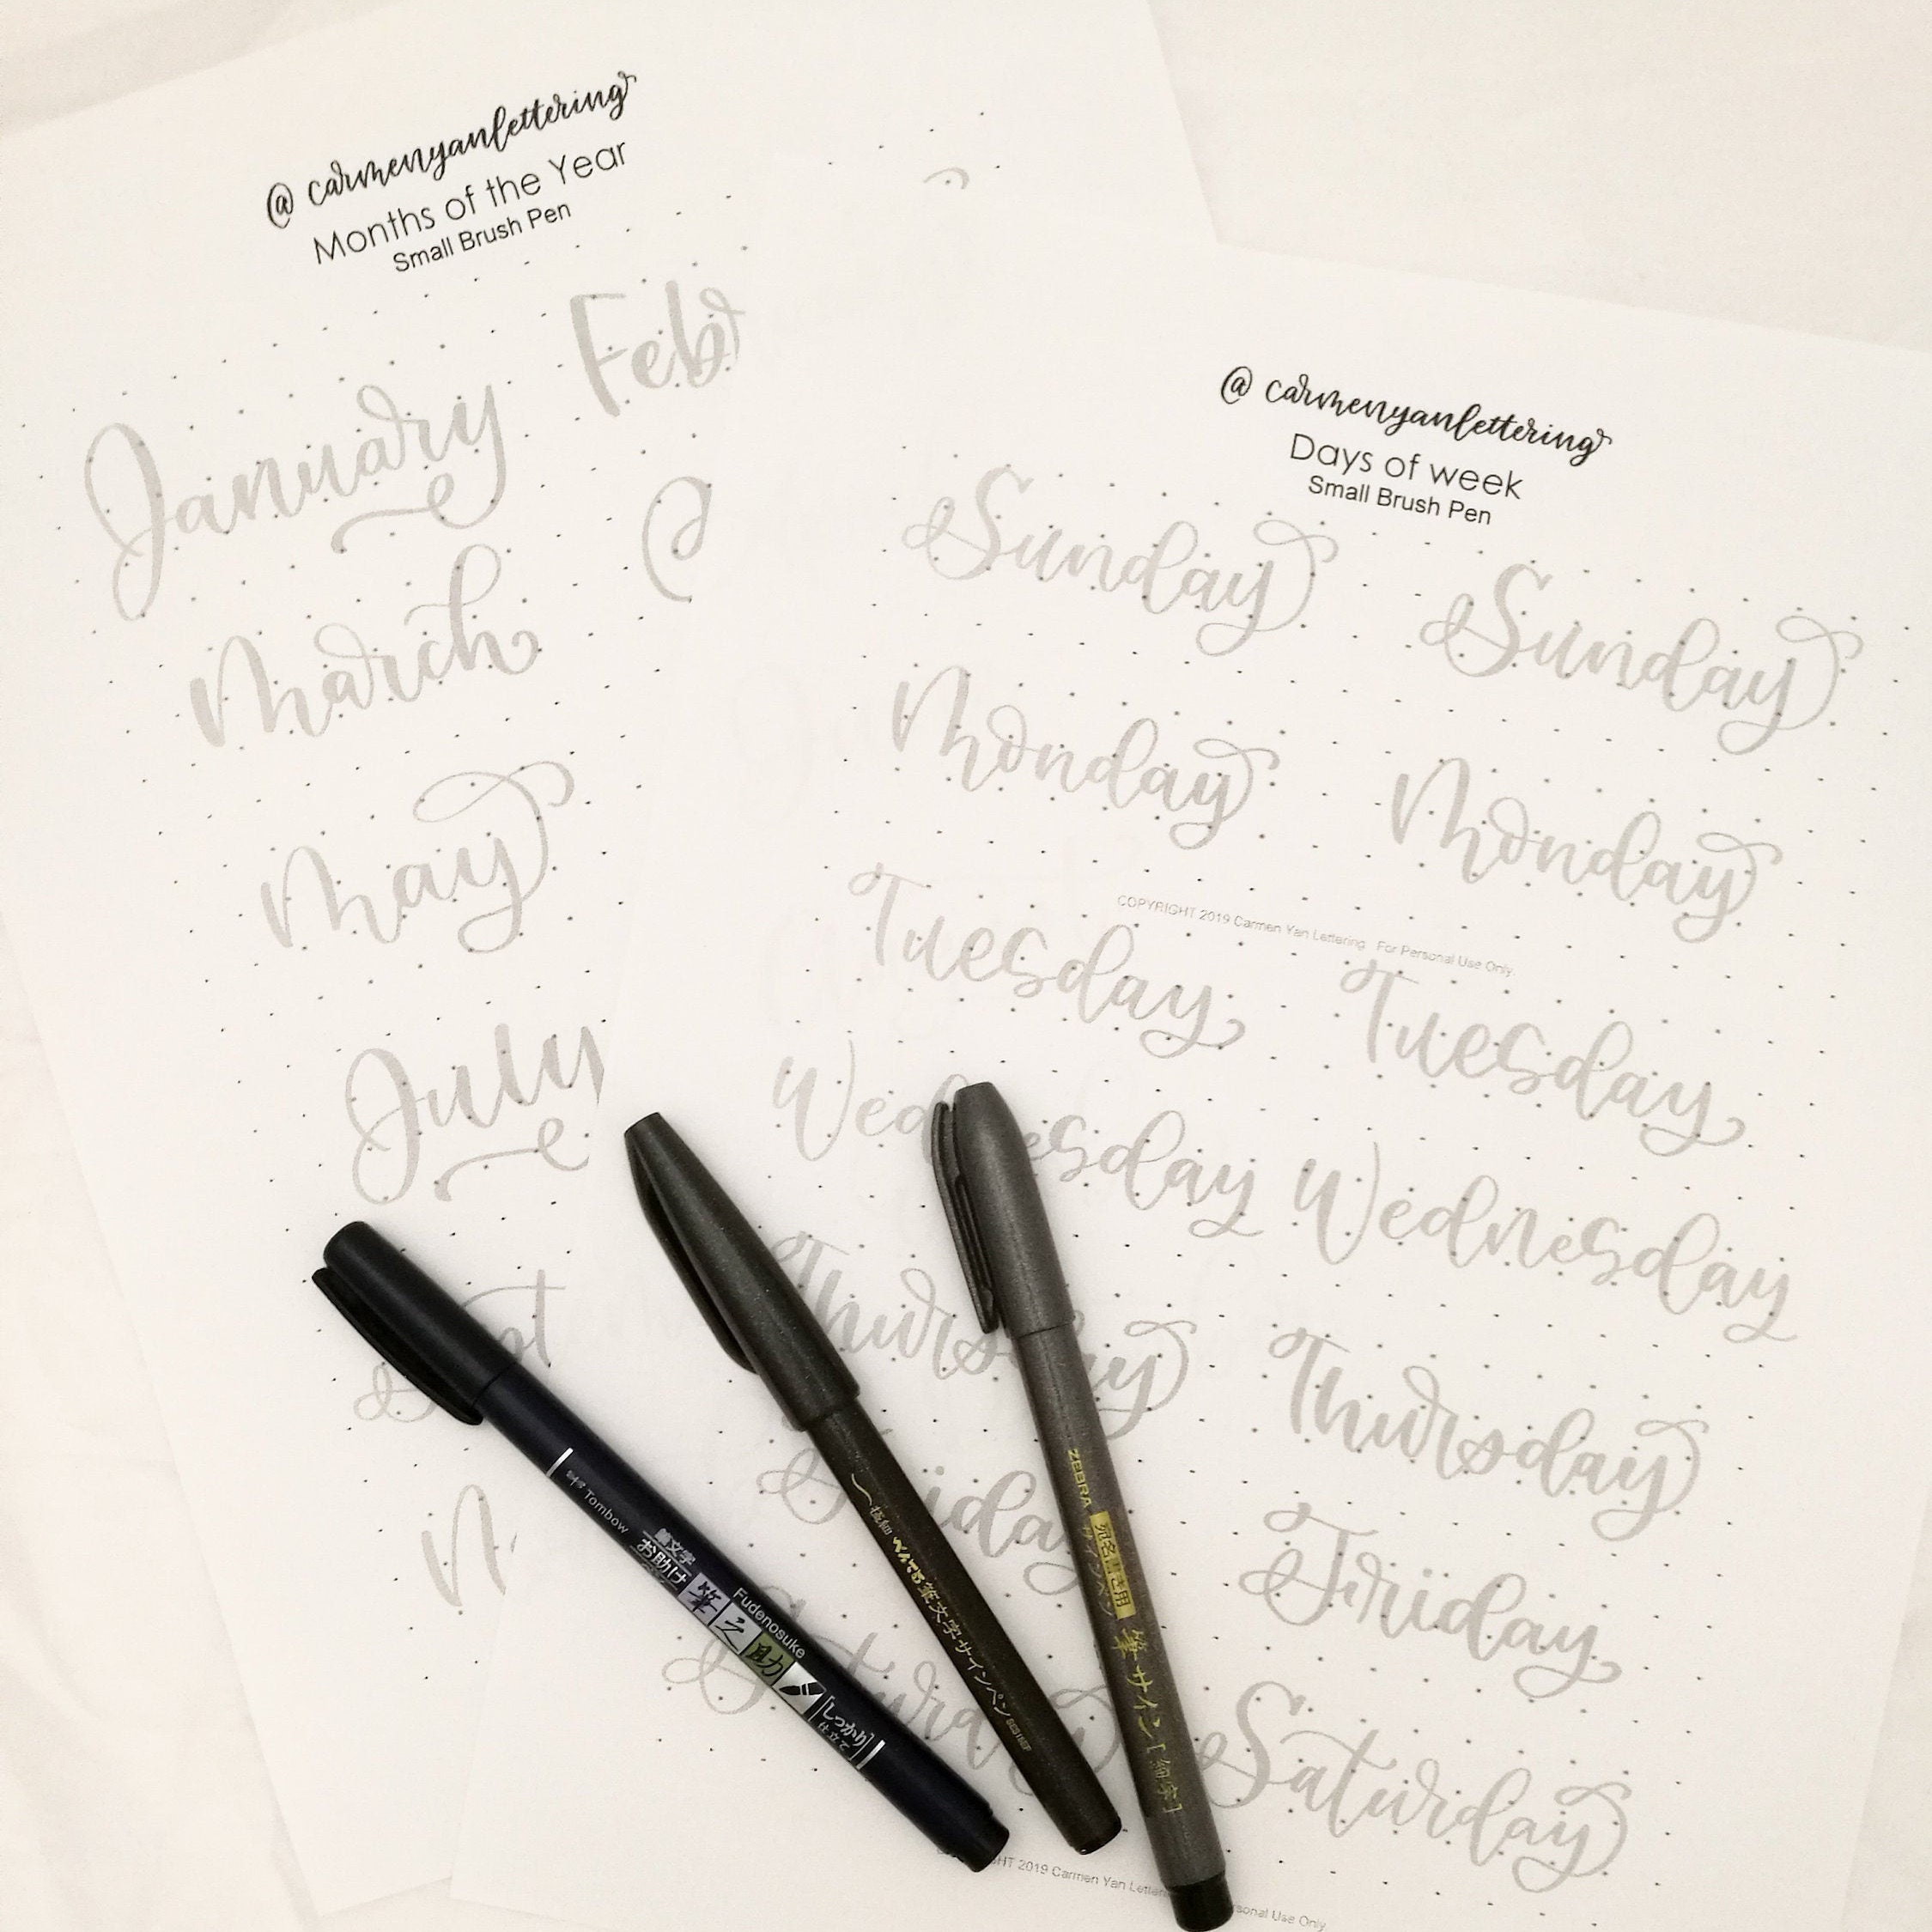 @ carmenyanlettering
Months of the Year
Small Brush Pen
January
March
May
July
@ carmenyanlettering
Days of week
Small Brush Pen
Sunday Sunday
Monday Monday
COPYRIGHT 2019 Carmen Yan Lettering. For Personal Use Only.
Tuesday Tuesday
Wednesday
Thursday
Friday
Saturday
2019 Carmen Yan
Use Only
Tombow
筆文字
お助け
筆之助
Fudenosuke
[しっかり]
仕立て
極細 ぺんてる 筆文字サインペン
ZEBRA
筆サイン[細字]